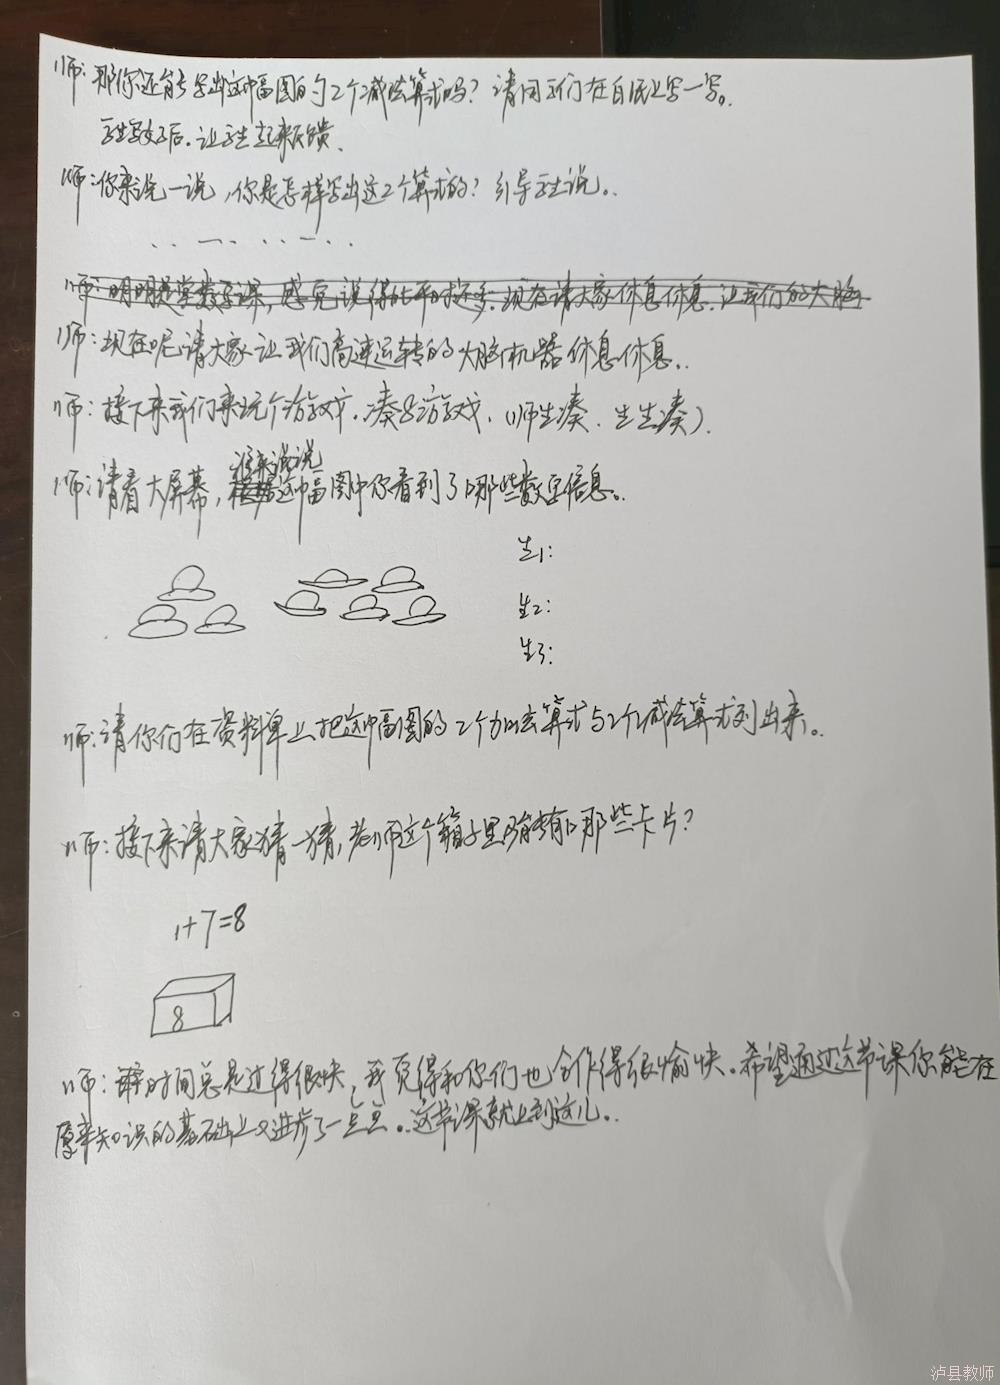 师：那你还能写出这幅图的2个减法算式吗？请同学们在白纸上写一写。
学生写好后，让学生起来反馈。
师：你来说一说，你是怎样写出这2个算式的？引导学生说。
师：明明是堂数学课，感觉说得比平时还多。现在请大家休息休息。让我们的大脑
师：现在呢请大家让我们高速运转的大脑机器休息休息。
师：接下来我们来玩个游戏。凑8游戏。（师生凑、生生凑）
谁来说说
师：请看大屏幕，这幅图中你看到了哪些数学信息。
生1：
生2：
生3：
师：请你们在资料单上把这幅图的2个加法算式与2个减法算式列出来。
师：接下来请大家猜一猜，老师这个箱子里可能有哪些卡片？
1+7=8
8
师：时间总是过得很快，我觉得和你们也合作得很愉快。希望通过这节课你能在
原来知识的基础上又进步了一点点。这节课就上到这儿。
泸县教师